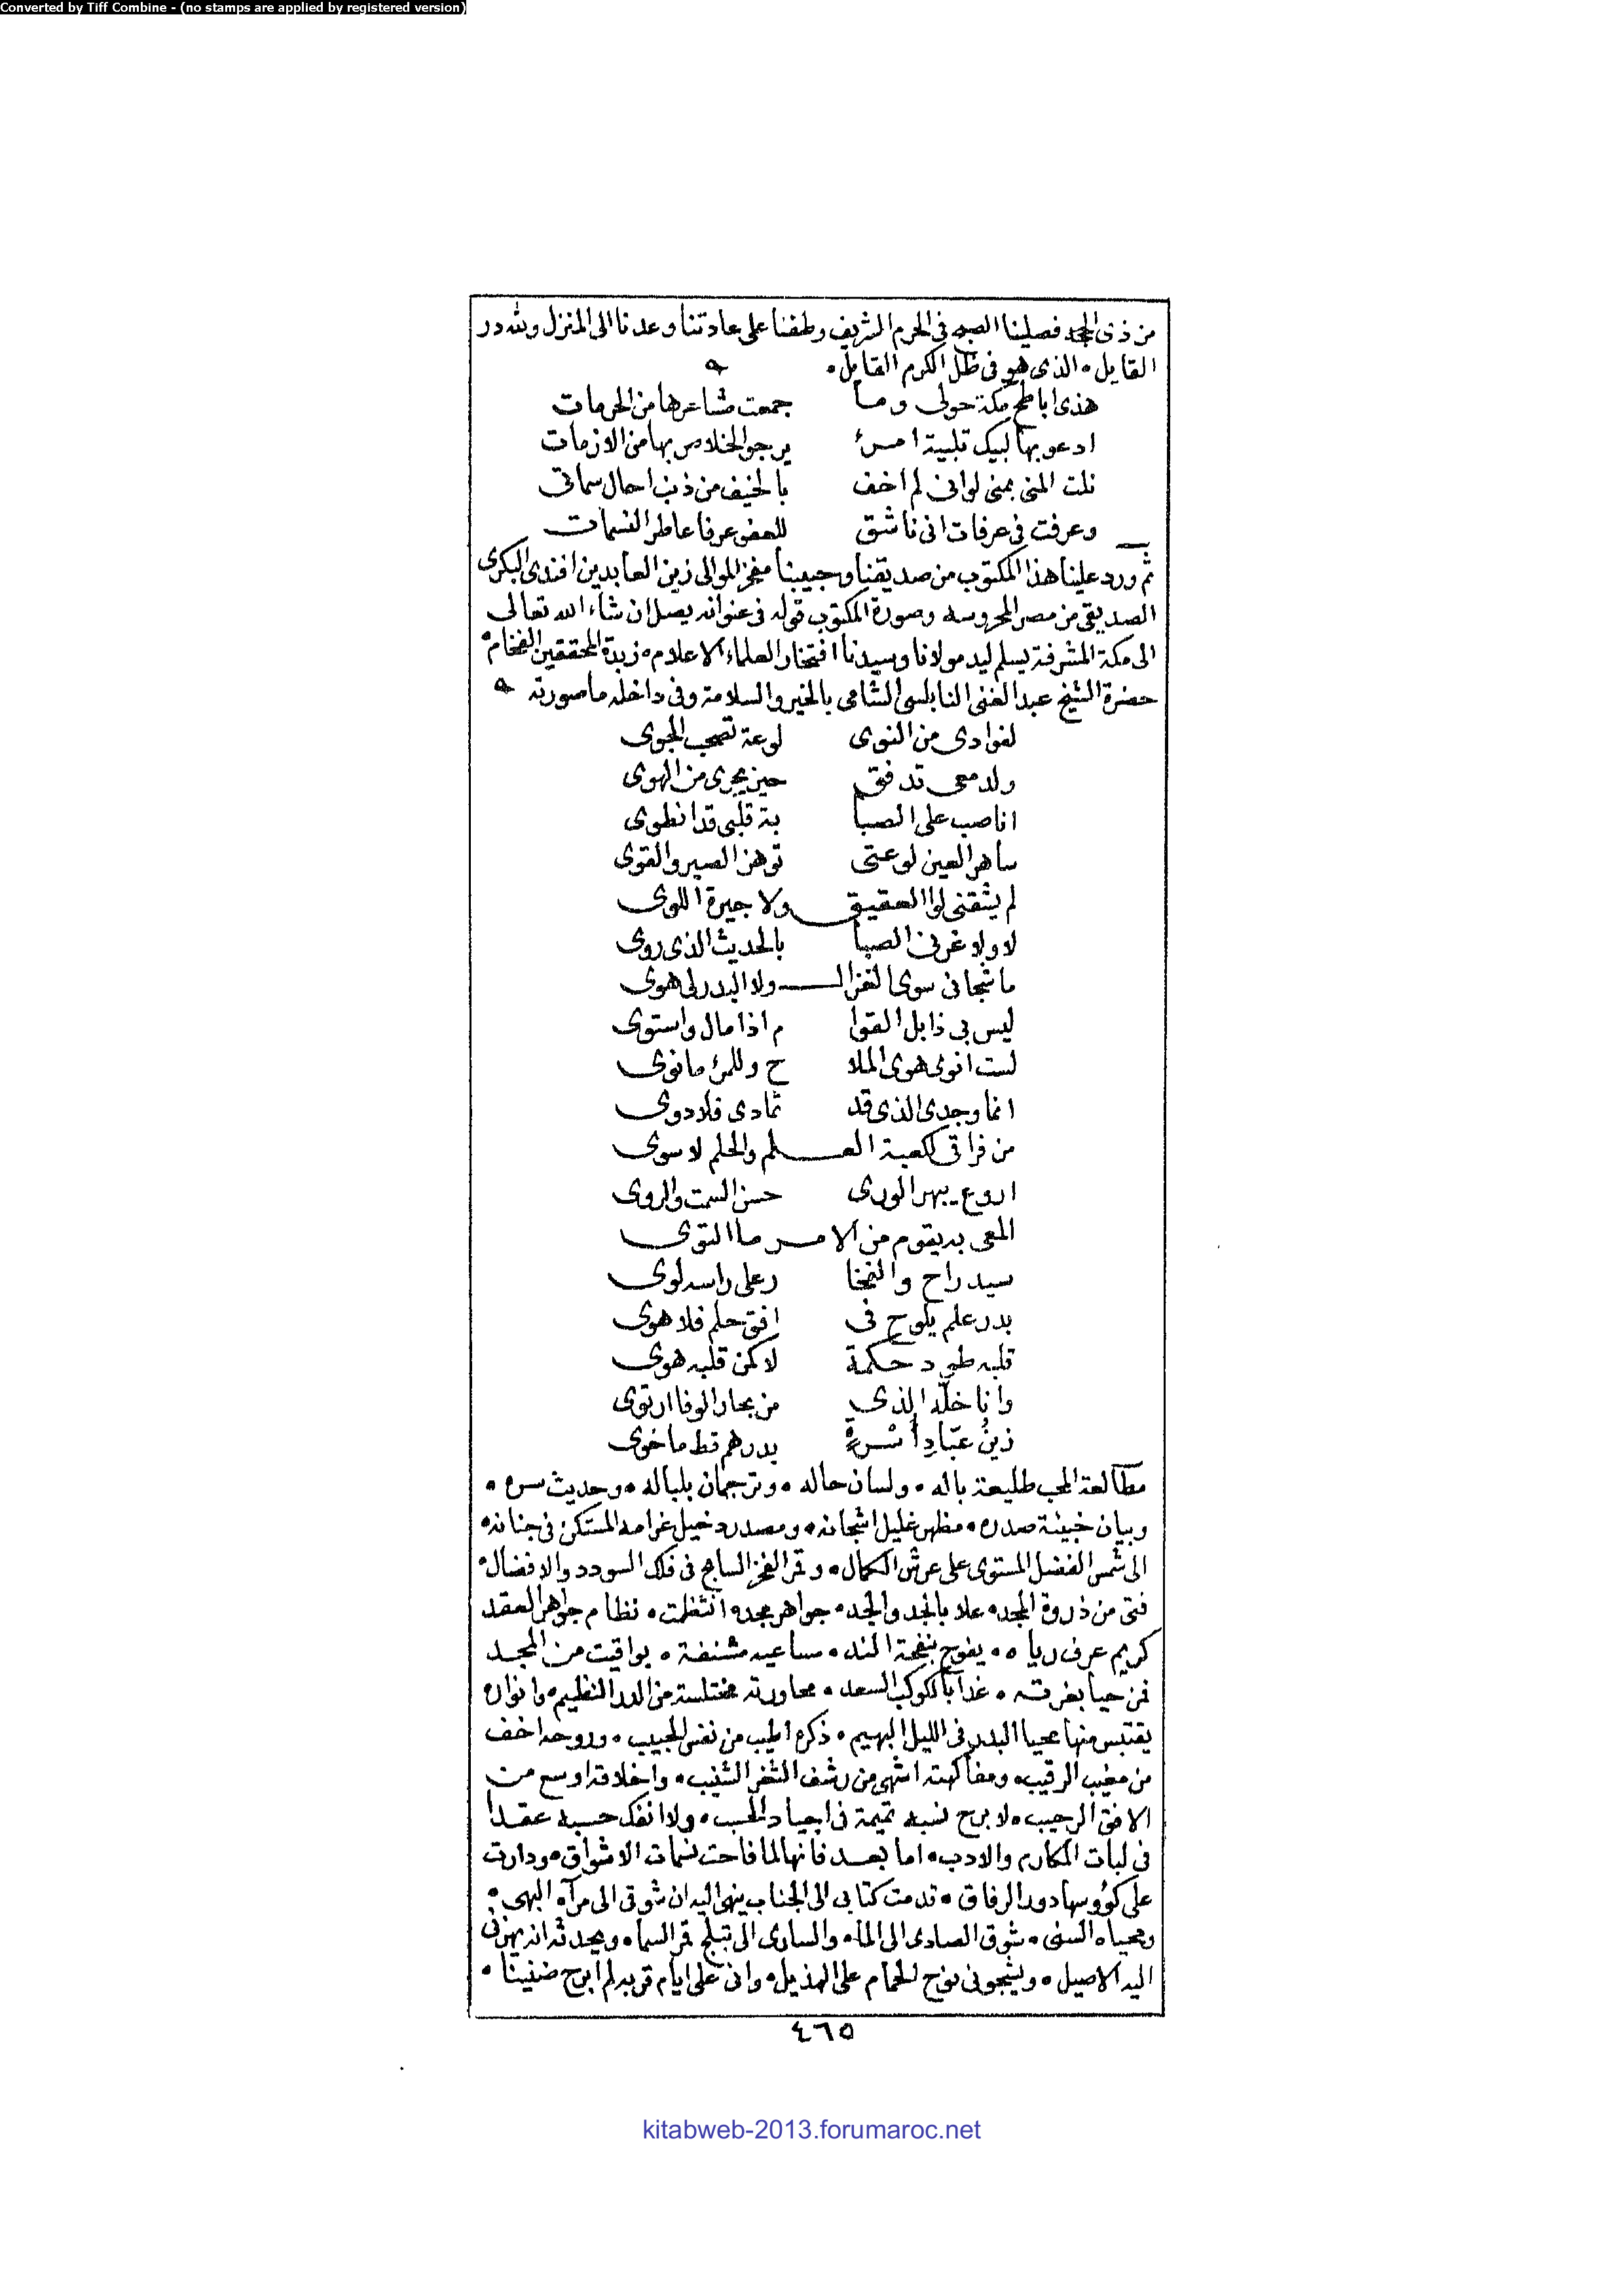 Converted by Tiff Combine - (no stamps are applied by registered version)
من ذى الحجة فصلينا الصبح فى الحرم الشريف وطفنا على عادتنا وعدنا الى المنزل ولله در
القايل • الذى هو فى ظل الكرم القايل •
هذى اباطح مكة حولى وما جمعت مشاعرها من الحرمات
ادعو بها لبيك تلبية امرئ يرجو الخلاص بها من الازمات
نلت المنى بمنى لوانى لم اخف بالخيف من ذنب احال سماتى
وعرفت فى عرفات انى ناشق للعفو عرفا عاطر النسمات
ثم ورد علينا هذا المكتوب من صديقنا وحبيبنا مفخر الموالى زين العابدين افندى البكرى
الصديقى من مصر المحروسه وصورة المكتوب قوله فى عنوانه يصل ان شاء الله تعالى
الى مكة المشرفة يسلم ليد مولانا وسيدنا افتخار العلماء الاعلام • زبدة المحققين الفخام •
حضرة الشيخ عبد الغنى النابلسى الشامى بالخير والسلامة وفى داخله ما صورته
لفوادى من النوى لوعة تصحب الجوى
ولدمعى تدفق حين يجرى من الهوى
انا صب على الصبا بة قلبى قد انطوى
ساهر العين لوعتى توهن الصبر والقوى
لم يشقنى لوا العقيق ولا جيرة اللوى
لا ولا غرنى الصبا بالحديث الذى روى
ما شجانى سوى الغزال ولا البدر لى هوى
ليس بى ذابل القوا م اذا مال واستوى
لست انوى هوى الملا ح وللمرء ما نوى
انما وجدى الذى قد تمادى فلا دوى
من فراقى لكعبة العـلم والحلم لا سوى
اروع يبهر الورى حسن السمت والروى
المعى به يقوم من الامر ما التوى
سيد راح والفخا ر على راسه لوى
بدر علم يلوح فى افق حلم فلا هوى
قلبه طود حكمة لاكمن قلبه هوى
وانا خلّه الذى من بحار الوفا ارتوى
زينُ عبّادِ أسرةٍ بدرهم قط ما خوى
مطالعة المحب طليعة باله • ولسان حاله • وترجمان بلباله • وحديث سره •
وبيان خبيئة صدره • مظهر غليل اشجانه • ومصدر دخيل غرامه المستكن فى جنانه •
الى شمس الفضل المستوى على عرش الكمال • وقمر الفخر السابح فى فلك السودد والافضال •
فتى من ذروة المجد • علا بالجد والجد • جواهر مجده انتظمت • نظام جواهر العقد
كريم عرف رياه • يفوح بنفحة الند • مساعيه مشنفة • يواقيت من المجد
فمن حيا بغرته • غدا بالكوكب السعد • محاورته مختلسة من الدر النظيم • وانواره
يقتبس منها محيا البدر فى الليل البهيم • ذكره اطيب من نفس الحبيب • وروحه اخف
من مغيب الرقيب • ومفاكهته اشهى من رشف الثغر الشنيب • واخلاقه اوسع من
الافق الرحيب • لا برح نسبه تميمة فى اجياد الحسب • ولا انفك حسبه عقدا
فى لبات المكارم والادب • اما بعد فانها لما فاحت نسمات الاشواق • ودارت
على كؤوسها دور الرفاق • قدمت كتابى الى الجناب ينهى اليه ان شوقى الى مرآه البهى •
ومحياه السنى • شوق الصادى الى الماء • والسارى الى تبلج قمر السما • ويحدثه انه يهزنى
اليه الاصيل • ويشجونى نوح الحمام على الهذيل • وانى على ايام قربه لم ابرح ضنينا •
٤٦٥
kitabweb-2013.forumaroc.net